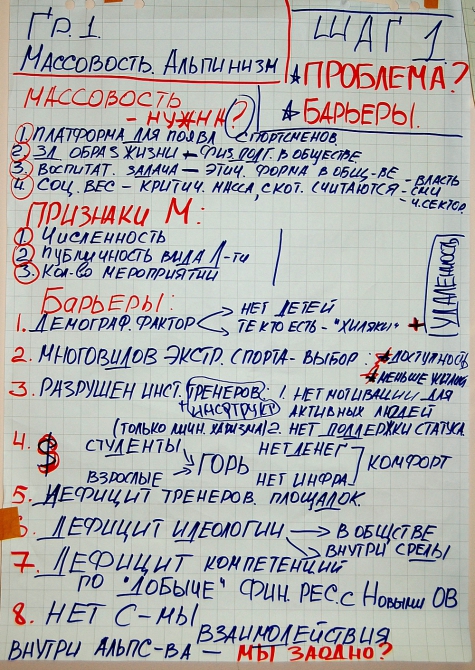 ГР.1
МАССОВОСТЬ. АЛЬПИНИЗМ
ШАГ 1
ПРОБЛЕМА?
БАРЬЕРЫ.
МАССОВОСТЬ
- НУЖНА?
1. ПЛАТФОРМА ДЛЯ ПОЯВЛ СПОРТСМЕНОВ
2. ЗД ОБРАЗ ЖИЗНИ + ФИЗ. ПОДГ. В ОБЩЕСТВЕ
3. ВОСПИТАТ. ЗАДАЧА - ЭТИЧ. ФОРМА В ОБЩ-ВЕ
4. СОЦ. ВЕС - КРИТИЧ. МАССА, С КОТ. СЧИТАЮТСЯ
- ВЛАСТЬ
- СМИ
- Ч. СЕКТОР
ПРИЗНАКИ М:
1 ЧИСЛЕННОСТЬ
2 ПУБЛИЧНОСТЬ ВИДА Д-ТИ
3. КОЛ-ВО МЕРОПРИЯТИЙ
БАРЬЕРЫ:
1. ДЕМОГРАФ. ФАКТОР
НЕТ ДЕТЕЙ
ТЕ КТО ЕСТЬ - "ХИЛЯКИ" +
УДАЛЕННОСТЬ
2. МНОГО ВИДОВ ЭКСТР. СПОРТА - ВЫБОР:
ДОСТУПНОСТЬ
МЕНЬШЕ
3. РАЗРУШЕН ИНСТ. ТРЕНЕРОВ: 1. НЕТ МОТИВАЦИИ ДЛЯ
+ АКТИВНЫХ ЛЮДЕЙ
(ТОЛЬКО ЛИЧН. ХАРИЗМА) 2. НЕТ ПОДДЕРЖКИ СТАТУСА
4. $
СТУДЕНТЫ НЕТ ДЕНЕГ
ГОРЬ КОМФОРТ
ВЗРОСЛЫЕ НЕТ ИНФРА
5. ДЕФИЦИТ ТРЕНЕРОВ. ПЛОЩАДОК.
6. ДЕФИЦИТ ИДЕОЛОГИИ → В ОБЩСТВЕ
ВНУТРИ СРЕДЫ
7. ДЕФИЦИТ КОМПЕТЕНЦИЙ
ПО "ДОБЫЧЕ" ФИН. РЕС. С НОВЫМИ ОВ
8. НЕТ С-МЫ
ВЗАИМОДЕЙСТВИЯ
ВНУТРИ АЛЬПС-ВА - МЫ ЗАОДНО?